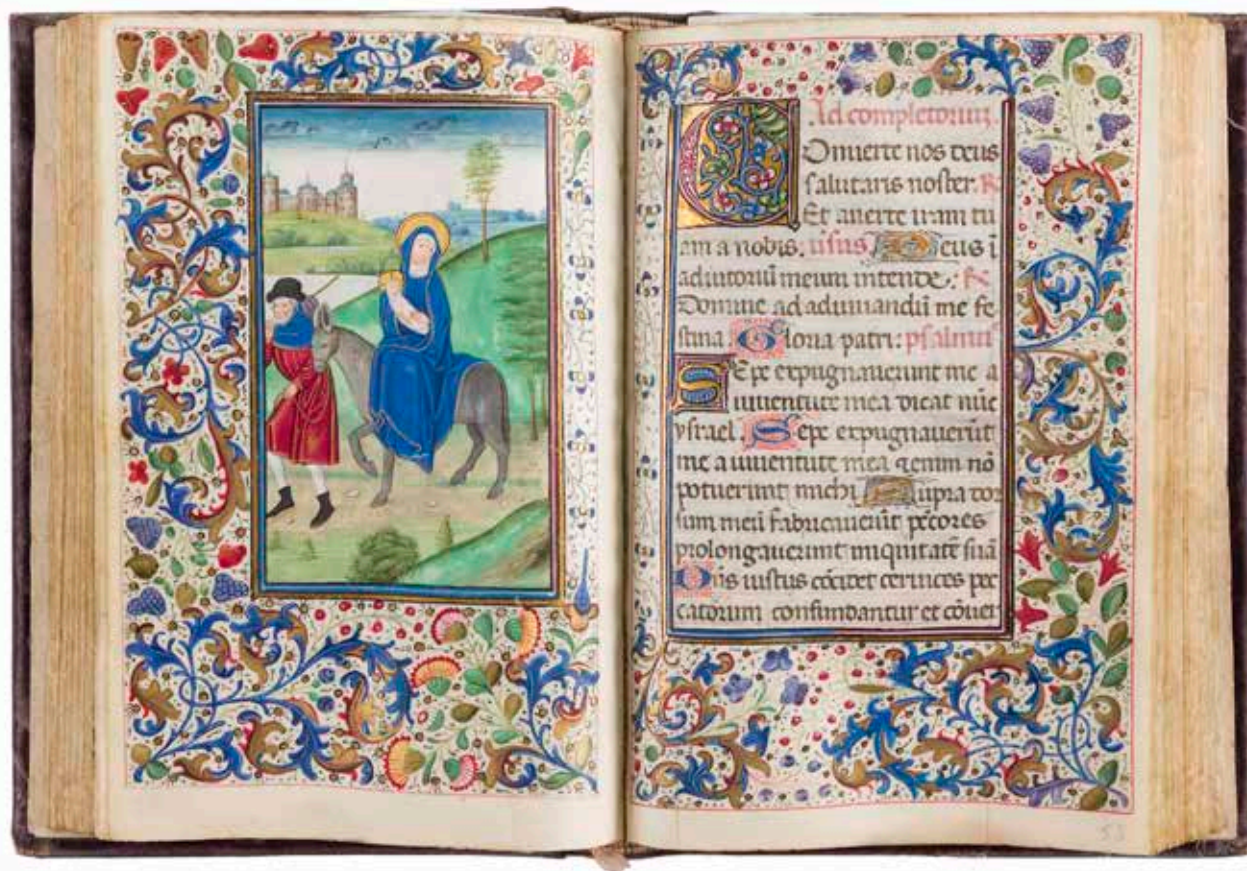 Ad completorium.
Conuerte nos deus
salutaris noster. R
Et auerte iram tu
am a nobis. usus Deus ī
adiutoriū meum intende. R
Domine ad adiuuandū me fe
stina Gloria patri: psalmus
Sepe expugnauerunt me a
iuuentute mea dicat nūc
ysrael. Sepe expugnauerūt
me a iuuentute mea etenim nō
potuerunt michi Supra dor
sum meū fabricauerūt pec̄cores
prolongauerunt iniquitatē suā
Dn̄s iustus cōcidet ceruices pec
catorum confundantur et cōuer
53